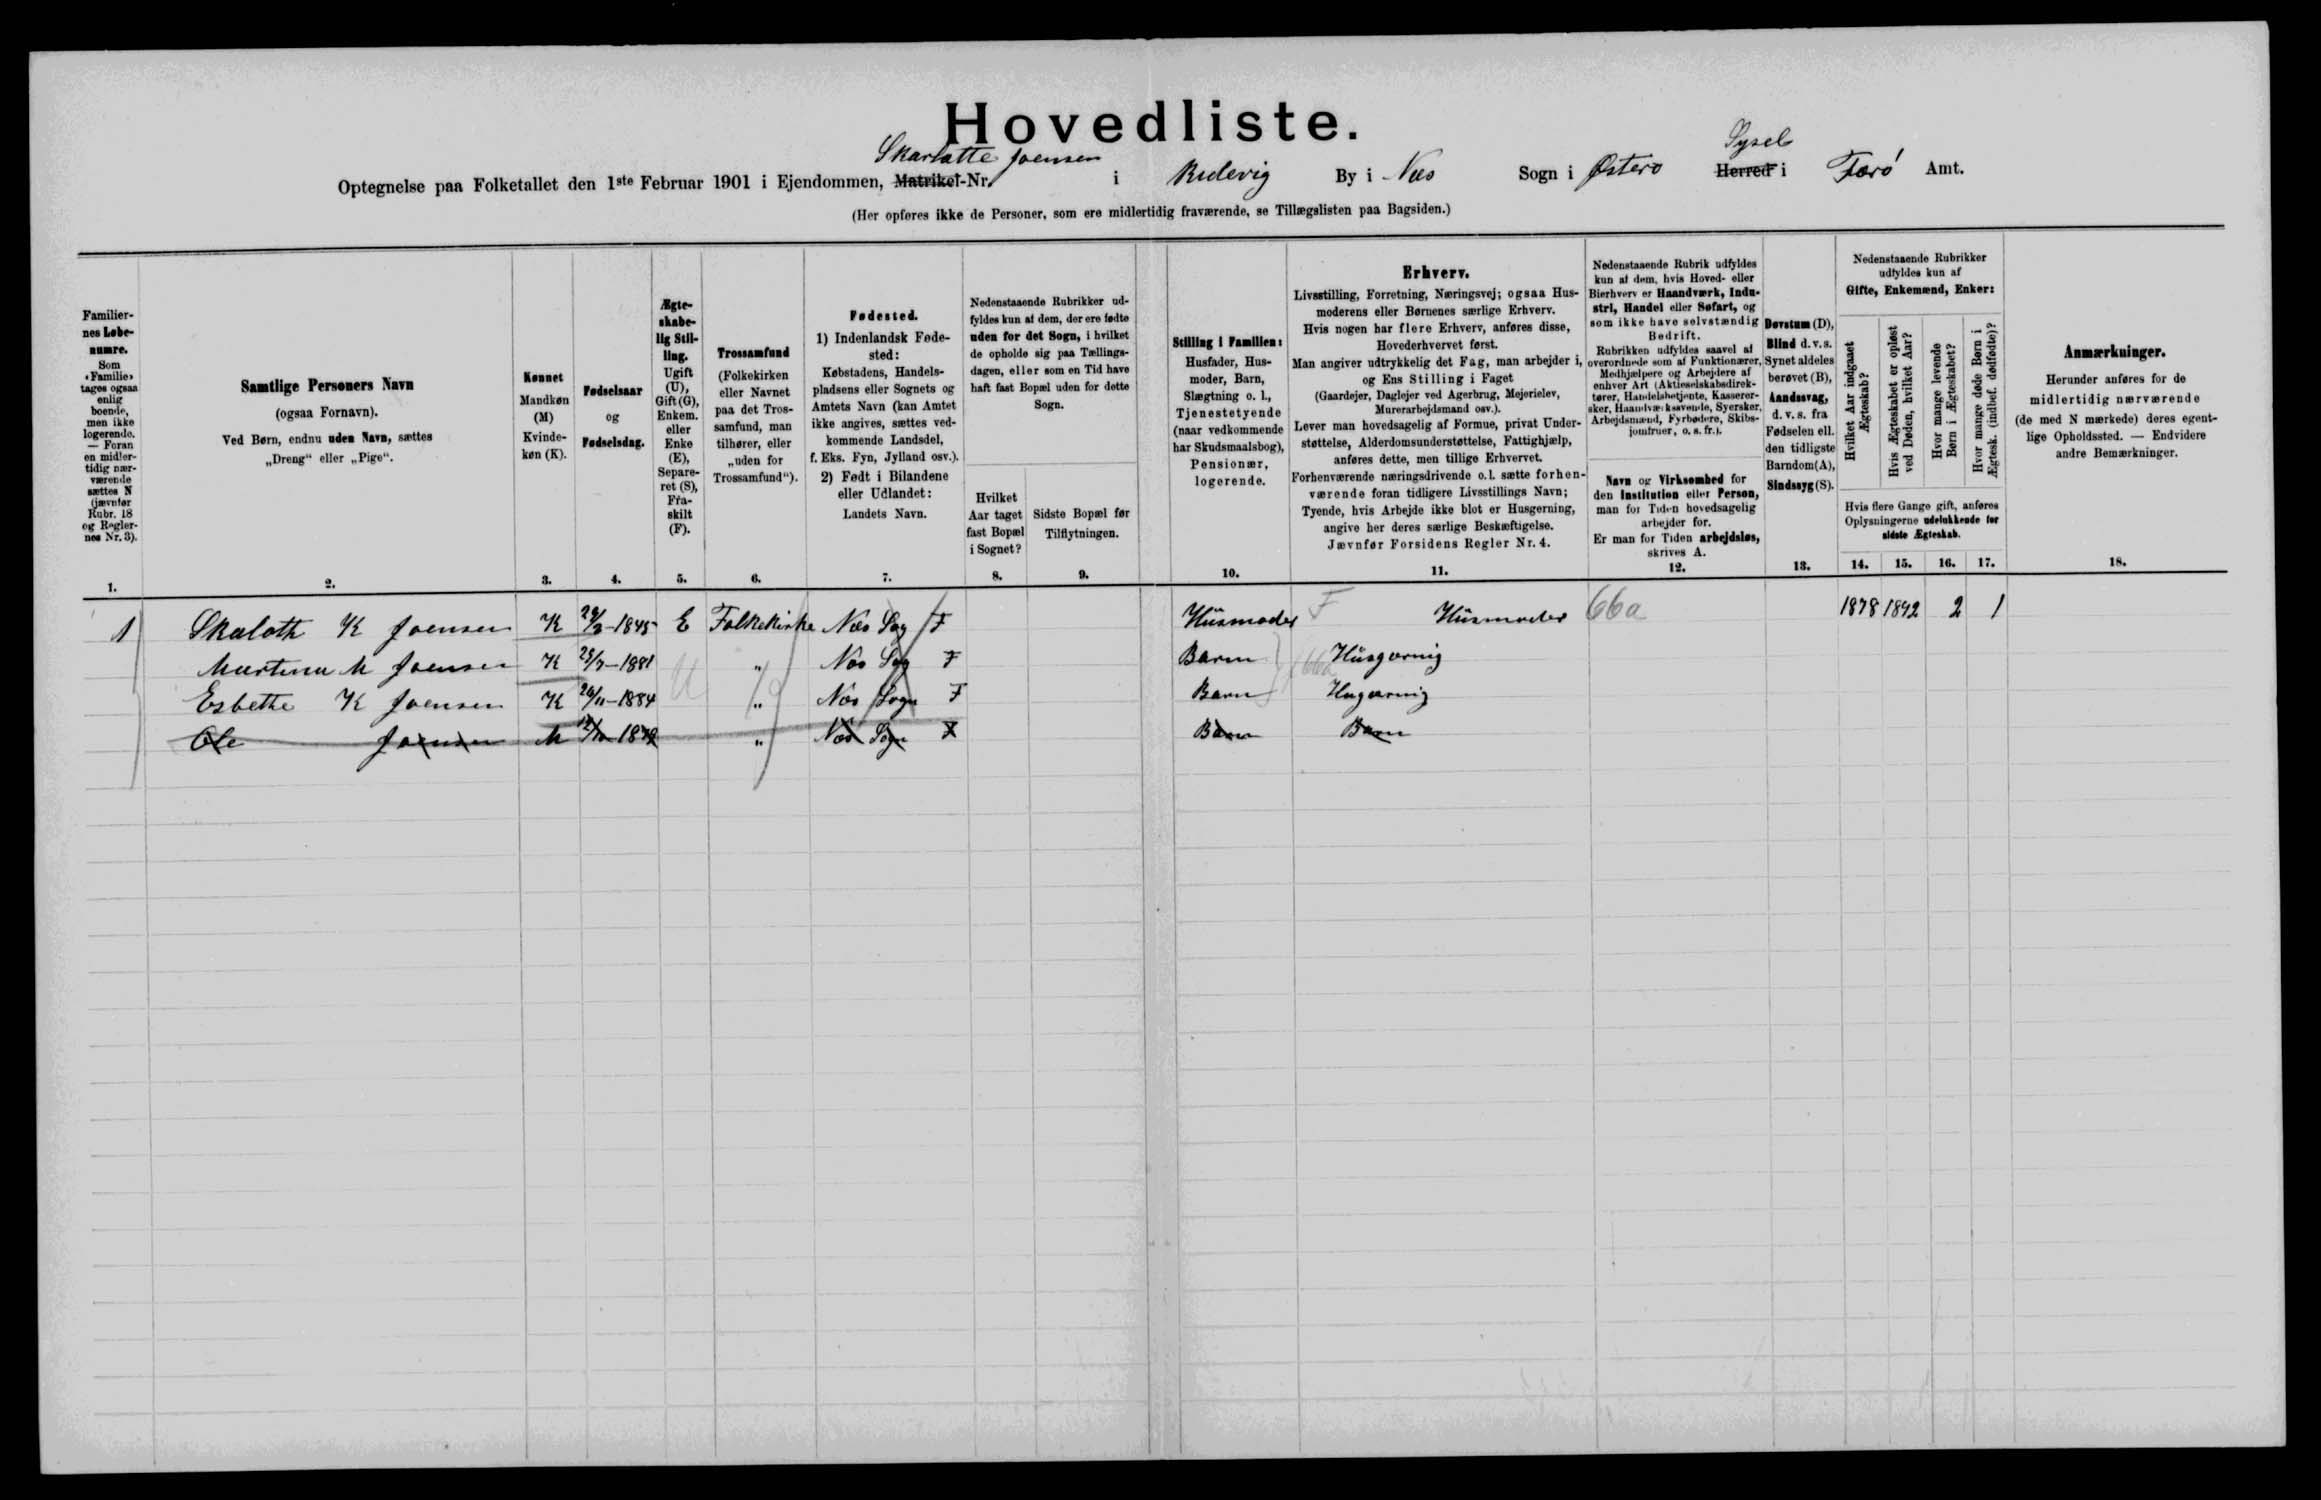 Hovedliste.
Skarlatte Joensen
Sysel
Optegnelse paa Folketallet den 1ste Februar 1901 i Ejendommen, Matrikel-Nr. i Ridevig By i Næs Sogn i Østerø Herred i Færø Amt.
(Her opføres ikke de Personer, som ere midlertidig fraværende, se Tillægslisten paa Bagsiden.)
Familier-
nes Løbe-
numre.
Som
«Familie»
tages ogsaa
enlig
boende,
men ikke
logerende.
— Foran
en midler-
tidig nær-
værende
sættes N
(jævnfør
Rubr. 18
og Regler-
nes Nr. 3).
1.
Samtlige Personers Navn
(ogsaa Fornavn).
Ved Børn, endnu uden Navn, sættes
„Dreng“ eller „Pige“.
2.
Kønnet
Mandkøn
(M)
Kvinde-
køn (K).
3.
Fødselsaar
og
Fødselsdag.
4.
Ægte-
skabe-
lig Stil-
ling.
Ugift
(U),
Gift (G),
Enkem.
eller
Enke
(E),
Separe-
ret (S),
Fra-
skilt
(F).
5.
Trossamfund
(Folkekirken
eller Navnet
paa det Tros-
samfund, man
tilhører, eller
„uden for
Trossamfund“).
6.
Fødested.
1) Indenlandsk Føde-
sted:
Købstadens, Handels-
pladsens eller Sognets og
Amtets Navn (kan Amtet
ikke angives, sættes ved-
kommende Landsdel,
f. Eks. Fyn, Jylland osv.).
2) Født i Bilandene
eller Udlandet:
Landets Navn.
7.
Nedenstaaende Rubrikker ud-
fyldes kun af dem, der ere fødte
uden for det Sogn, i hvilket
de opholde sig paa Tællings-
dagen, eller som en Tid have
haft fast Bopæl uden for dette
Sogn.
Hvilket
Aar taget
fast Bopæl
i Sognet?
8.
Sidste Bopæl før
Tilflytningen.
9.
Stilling i Familien:
Husfader, Hus-
moder, Barn,
Slægtning o. l.,
Tjenestetyende
(naar vedkommende
har Skudsmaalsbog),
Pensionær,
logerende.
10.
Erhverv.
Livsstilling, Forretning, Næringsvej; ogsaa Hus-
moderens eller Børnenes særlige Erhverv.
Hvis nogen har flere Erhverv, anføres disse,
Hovederhvervet først.
Man angiver udtrykkelig det Fag, man arbejder i,
og Ens Stilling i Faget
(Gaardejer, Daglejer ved Agerbrug, Mejerielev,
Murerarbejdsmand osv.).
Lever man hovedsagelig af Formue, privat Under-
støttelse, Alderdomsunderstøttelse, Fattighjælp,
anføres dette, men tillige Erhvervet.
Forhenværende næringsdrivende o. l. sætte forhen-
værende foran tidligere Livsstillings Navn;
Tyende, hvis Arbejde ikke blot er Husgerning,
angive her deres særlige Beskæftigelse.
Jævnfør Forsidens Regler Nr. 4.
11.
Nedenstaaende Rubrik udfyldes
kun af dem, hvis Hoved- eller
Bierhverv er Haandværk, Indu-
stri, Handel eller Søfart, og
som ikke have selvstændig
Bedrift.
Rubrikken udfyldes saavel af
overordnede som af Funktionærer,
Medhjælpere og Arbejdere af
enhver Art (Aktieselskabsdirek-
tører, Handelsbetjente, Kasserer-
sker, Haandværkssvende, Syersker,
Arbejdsmænd, Fyrbødere, Skibs-
jomfruer, o. s. fr.).
Navn og Virksomhed for
den Institution eller Person,
man for Tiden hovedsagelig
arbejder for.
Er man for Tiden arbejdsløs,
skrives A.
12.
Døvstum (D),
Blind d. v. s.
Synet aldeles
berøvet (B),
Aandssvag,
d. v. s. fra
Fødselen ell.
den tidligste
Barndom (A),
Sindssyg (S).
13.
Nedenstaaende Rubrikker
udfyldes kun af
Gifte, Enkemænd, Enker:
Hvilket Aar indgaaet
Ægteskab?
Hvis Ægteskabet er opløst
ved Døden, hvilket Aar?
Hvor mange levende
Børn i Ægteskabet?
Hvor mange døde Børn i
Ægtesk. (indbef. dødfødte)?
Hvis flere Gange gift, anføres
Oplysningerne udelukkende for
sidste Ægteskab.
14. 15. 16. 17.
Anmærkninger.
Herunder anføres for de
midlertidig nærværende
(de med N mærkede) deres egent-
lige Opholdssted. — Endvidere
andre Bemærkninger.
18.
1 Skaloth K Joensen K 1845 E Folkekirke Næs Sog F Hüsmoder F Hüsmoder 66a 1878 1892 2 1
Martina M Joensen K 1881 „ Næs Sog F Barn Hüsgernig
Esbethe K Joensen K 26/11-1884 U „ Næs Sogn F Barn Husgernig
Ole Joensen M „ Næs Sogn F Barn Barn